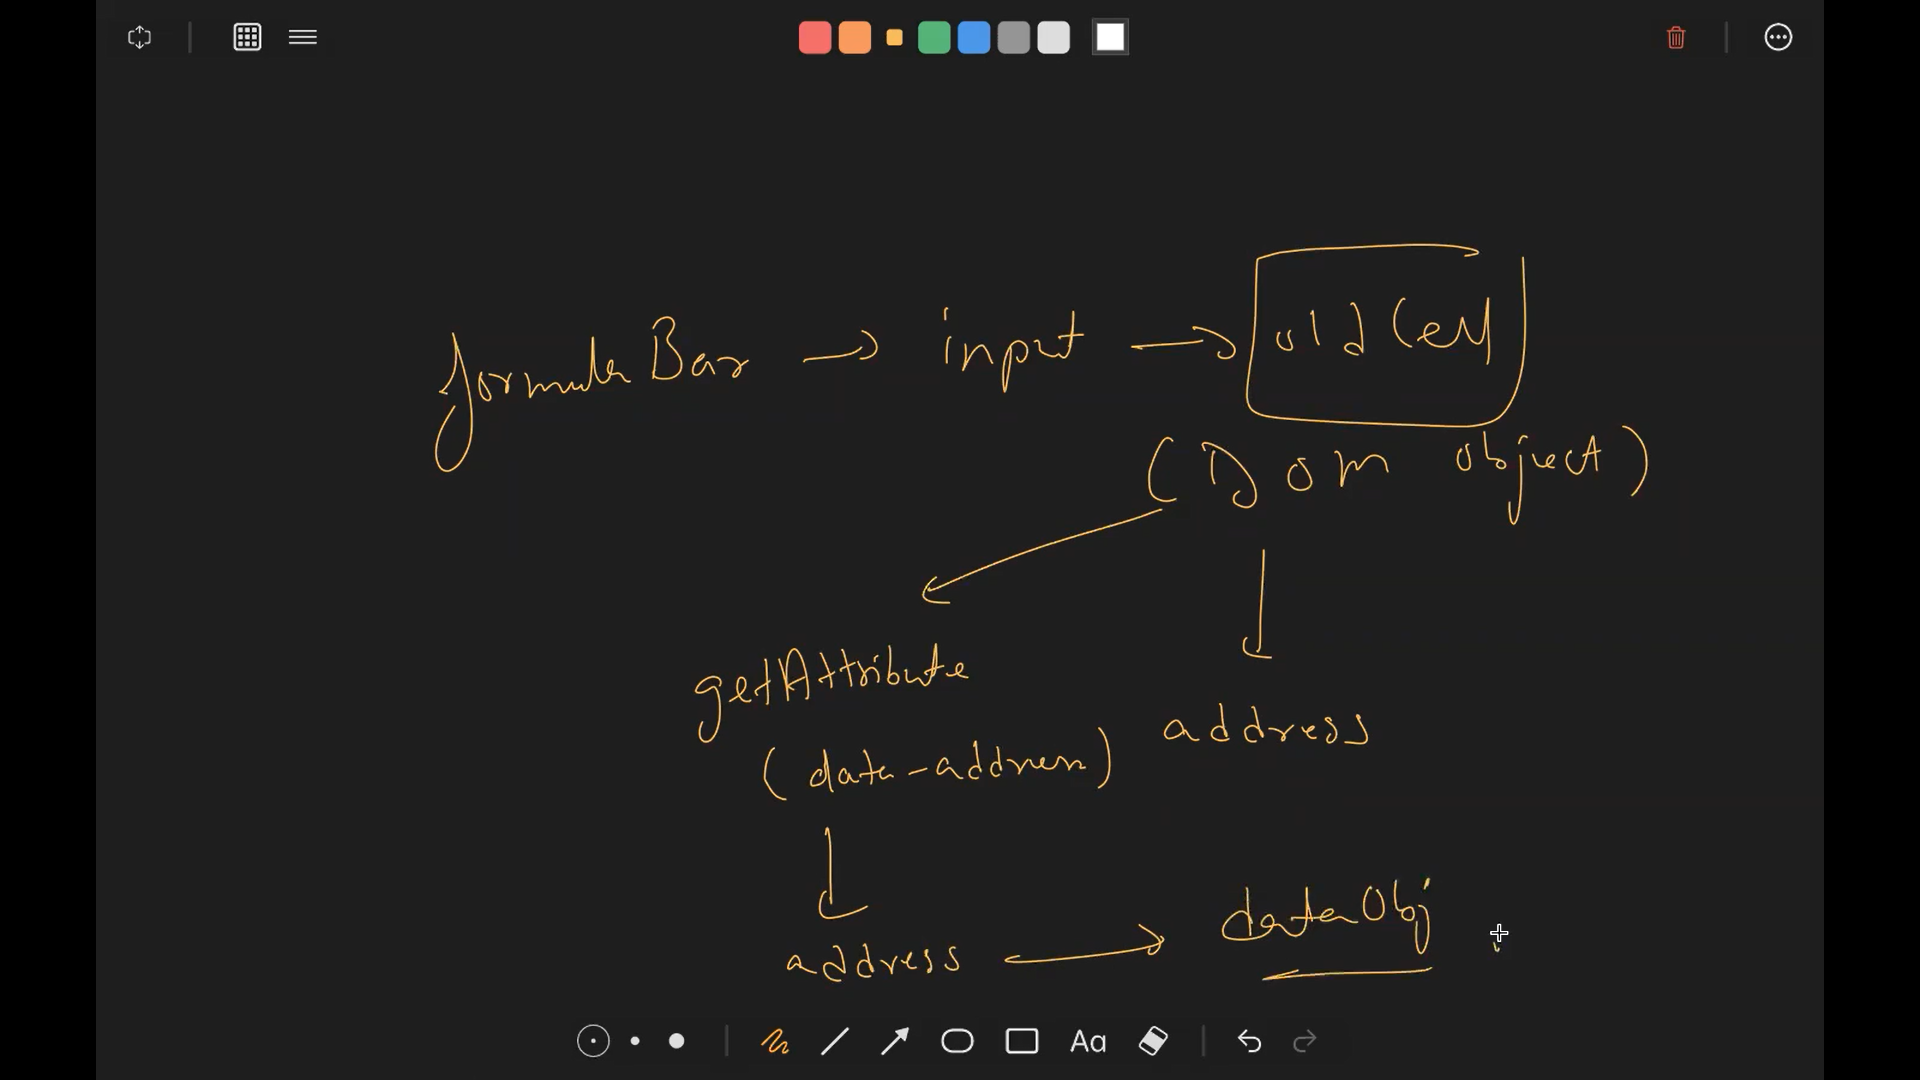 formulaBar → input → oldCell
(Dom object)
getAttribute
(data-address)
address
address → dataObj
Aa